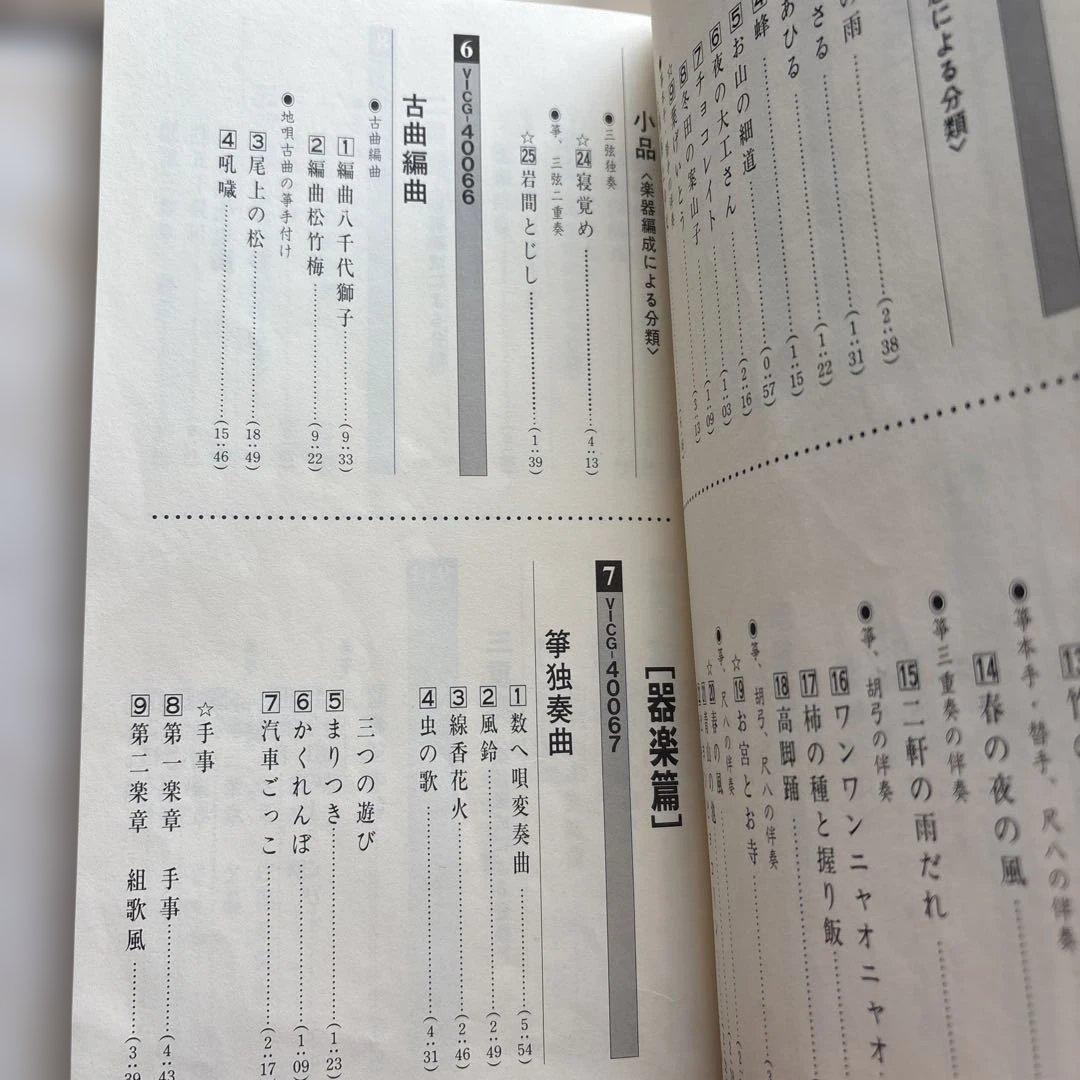 による分類〉
の雨 (2:38)
さる (1:31)
あひる (1:22)
4 蜂 (1:15)
5 お山の細道 (0:57)
6 夜の大工さん (2:16)
7 チョコレイト (1:03)
8 冬田の案山子 (1:09)
☆9 げいとう (3:13)
●箏本手・替手、尺八の伴奏
14 春の夜の風
●箏三重奏の伴奏
15 二軒の雨だれ
●箏、胡弓の伴奏
16 ワンワンニャオニャオ
17 柿の種と握り飯
18 高脚踊
●箏、胡弓、尺八の伴奏
☆19 お宮とお寺
●箏、尺八の伴奏
☆20 春の風
小品〈楽器編成による分類〉
●三弦独奏
☆24 寝覚め (4:13)
●箏、三弦二重奏
☆25 岩間とじし (1:39)
6 VICG-40066
古曲編曲
●古曲編曲
1 編曲八千代獅子 (9:33)
2 編曲松竹梅 (9:22)
●地唄古曲の箏手付け
3 尾上の松 (18:49)
4 吼噦 (15:46)
［器楽篇］
7 VICG-40067
箏独奏曲
1 数へ唄変奏曲 (5:54)
2 風鈴 (2:49)
3 線香花火 (2:46)
4 虫の歌 (4:31)
三つの遊び
5 まりつき (1:23)
6 かくれんぼ (1:09)
7 汽車ごっこ (2:17)
☆手事
8 第一楽章 手事 (4:43)
9 第二楽章 組歌風 (3:39)